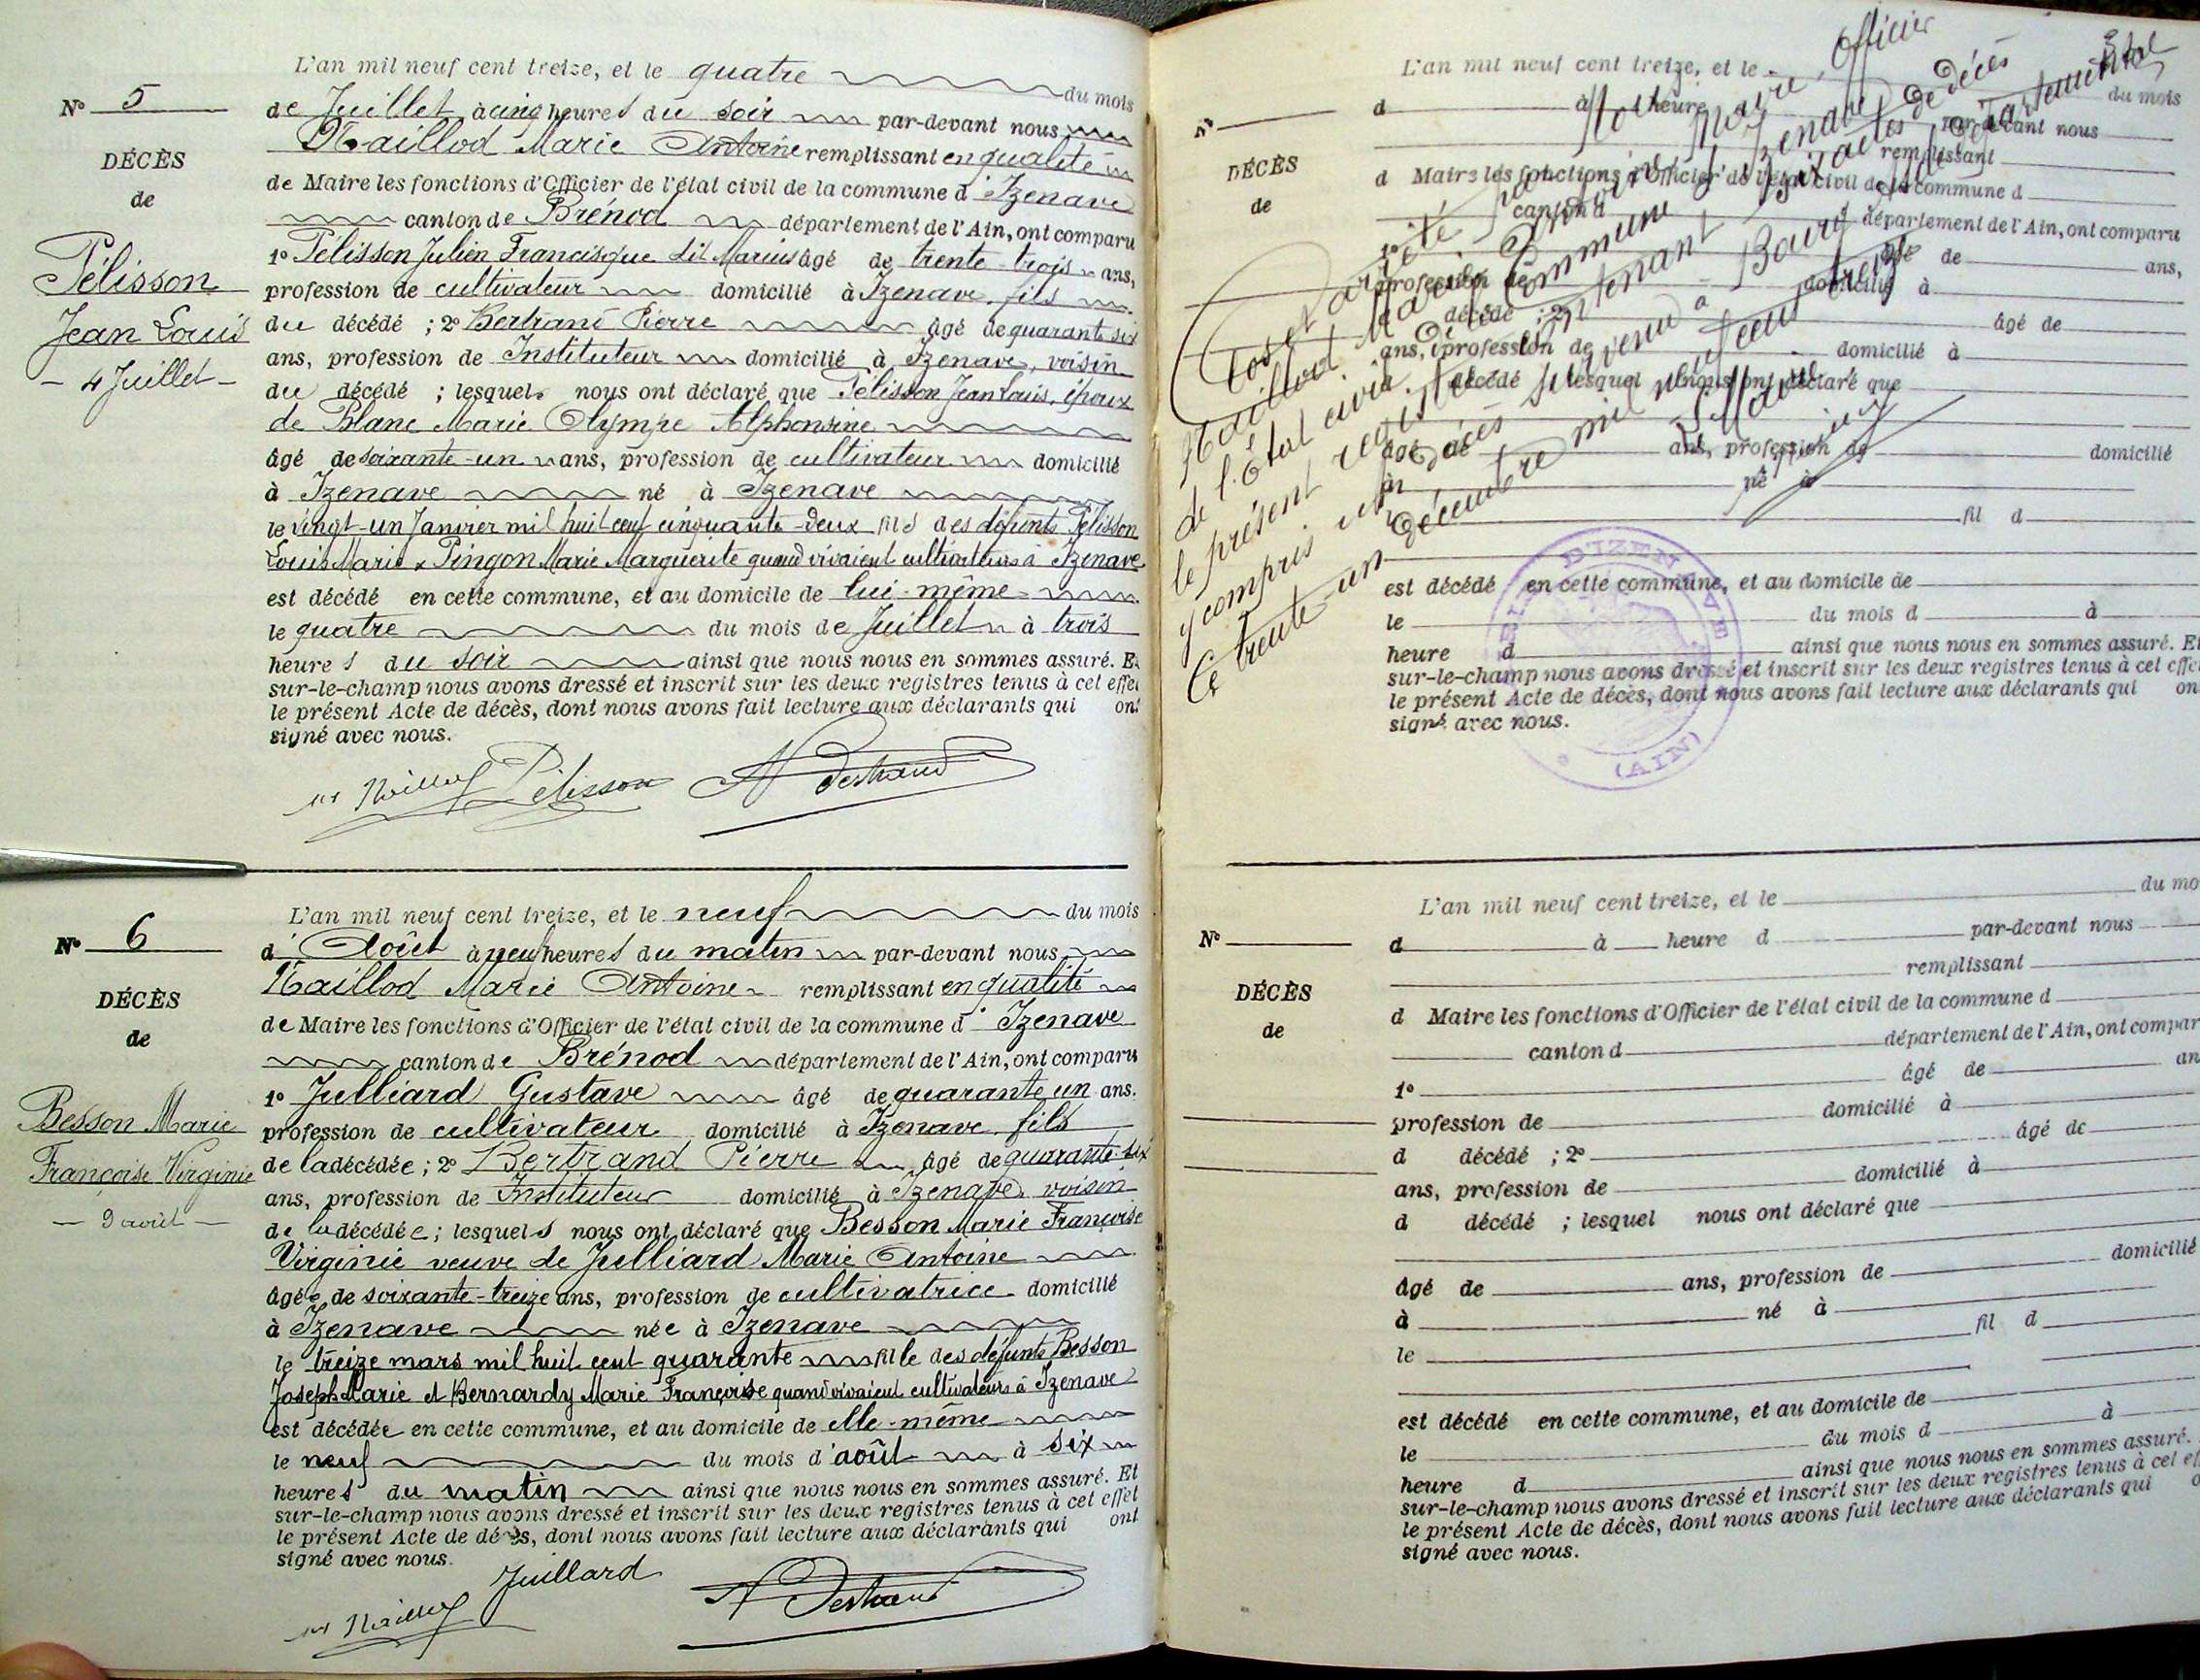 L'an mil neuf cent treize, et le quatre du mois
N° 5
de Juillet à cinq heures du soir par-devant nous
Maillod Marie Antoine remplissant en qualité
DÉCÈS
de Maire les fonctions d'Officier de l'état civil de la commune d'Izenave
de
canton de Brénod département de l'Ain, ont comparu
1° Pélisson Julien Francisque dit Marius âgé de trente-trois ans,
Pélisson
profession de cultivateur domicilié à Izenave, fils
Jean Louis
du décédé ; 2° Bertrand Pierre âgé de quarante six
ans, profession de Instituteur domicilié à Izenave, voisin
4 Juillet
du décédé ; lesquels nous ont déclaré que Pélisson Jean Louis, époux
de Blanc Marie Olympe Alphonsine
âgé de soixante-un ans, profession de cultivateur domicilié
à Izenave né à Izenave
le vingt-un Janvier mil huit cent cinquante-deux fils des défunts Pélisson
Louis Marie & Pingon Marie Marguerite quand vivaient cultivateurs à Izenave
est décédé en cette commune, et au domicile de lui-même
le quatre du mois de Juillet à trois
heures du soir ainsi que nous nous en sommes assuré. Et
sur-le-champ nous avons dressé et inscrit sur les deux registres tenus à cet effet
le présent Acte de décès, dont nous avons fait lecture aux déclarants qui ont
signé avec nous.
Pélisson
L'an mil neuf cent treize, et le neuf du mois
N° 6
d'Août à neuf heures du matin par-devant nous
Maillod Marie Antoine remplissant en qualité
DÉCÈS
de Maire les fonctions d'Officier de l'état civil de la commune d'Izenave
de
canton de Brénod département de l'Ain, ont comparu
1° Julliard Gustave âgé de quarante un ans.
Besson Marie
profession de cultivateur domicilié à Izenave, fils
Françoise Virginie
de la décédée ; 2° Bertrand Pierre âgé de quarante-six
ans, profession de Instituteur domicilié à Izenave, voisin
9 août
de la décédée ; lesquels nous ont déclaré que Besson Marie Françoise
Virginie veuve de Julliard Marie Antoine
âgée de soixante-treize ans, profession de cultivatrice domicilié
à Izenave née à Izenave
le treize mars mil huit cent quarante fille des défunts Besson
Joseph Marie et Bernardy Marie Françoise quand vivaient cultivateurs à Izenave
est décédée en cette commune, et au domicile de elle-même
le neuf du mois d'août à six
heures du matin ainsi que nous nous en sommes assuré. Et
sur-le-champ nous avons dressé et inscrit sur les deux registres tenus à cet effet
le présent Acte de décès, dont nous avons fait lecture aux déclarants qui ont
signé avec nous.
Juillard
L'an mil neuf cent treize, et le du mois
N°
d à heure par-devant nous
remplissant
DÉCÈS
d Maire les fonctions d'Officier de l'état civil de la commune d
de
canton d département de l'Ain, ont comparu
1° âgé de ans,
profession de domicilié à
décédé ; 2° âgé de
ans, profession de domicilié à
décédé ; lesquel nous ont déclaré que
âgé de ans, profession de domicilié
à né à
fil d
est décédé en cette commune, et au domicile de
le du mois d à
heure d ainsi que nous nous en sommes assuré. Et
sur-le-champ nous avons dressé et inscrit sur les deux registres tenus à cet effe
le présent Acte de décès, dont nous avons fait lecture aux déclarants qui on
signé avec nous.
Clos et arrêté par nous
Maillod Marie Antoine Maire, Officier
de l'état civil de la Commune d'Izenave
le présent registre contenant six actes de décès
y compris un décès survenu à Bourg
Ce trente-un décembre mil neuf cent treize
Le Maire
D'IZENAVE
(AIN)
L'an mil neuf cent treize, et le du mo
N°
d à heure d par-devant nous
remplissant
DÉCÈS
d Maire les fonctions d'Officier de l'état civil de la commune d
de
canton d département de l'Ain, ont compar
1° âgé de an
profession de domicilié à
d décédé ; 2° âgé de
ans, profession de domicilié à
d décédé ; lesquel nous ont déclaré que
âgé de ans, profession de domicilié
à né à
le fil d
est décédé en cette commune, et au domicile de
le du mois d à
heure d ainsi que nous nous en sommes assuré.
sur-le-champ nous avons dressé et inscrit sur les deux registres tenus à cet ef
le présent Acte de décès, dont nous avons fait lecture aux déclarants qui o
signé avec nous.